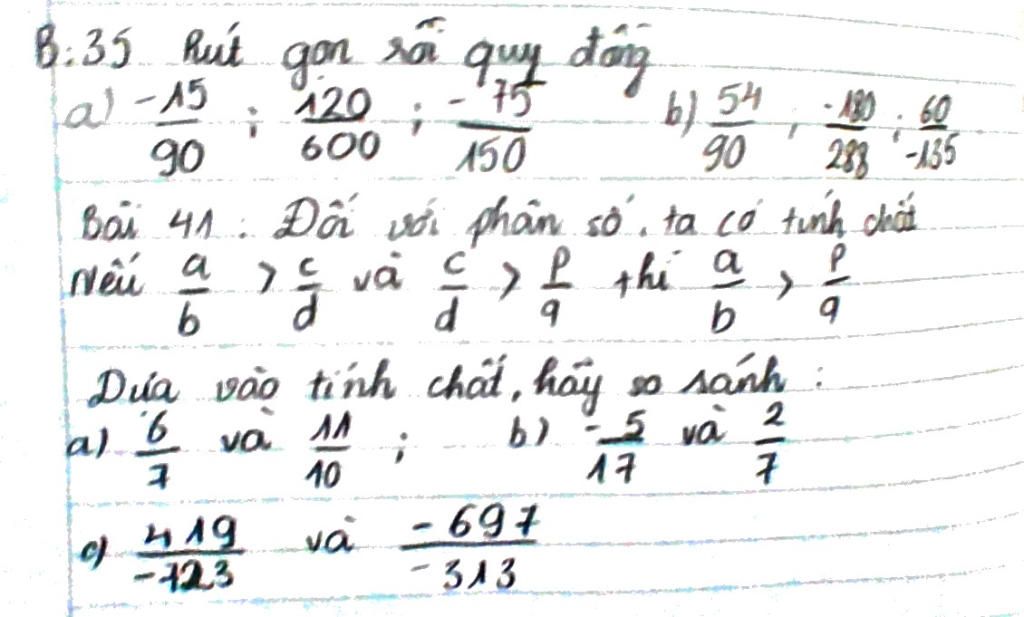 B:35 Rút gọn rồi quy đồng
a) -15/90 ; 120/600 ; -75/150 b) 54/90 ; -180/288 ; 60/-135
Bài 41 : Đối với phân số, ta có tính chất
Nếu a/b > c/d và c/d > p/q thì a/b > p/q
Dựa vào tính chất, hãy so sánh :
a) 6/7 và 11/10 ; b) -5/17 và 2/7
c) 419/-723 và -697/-313